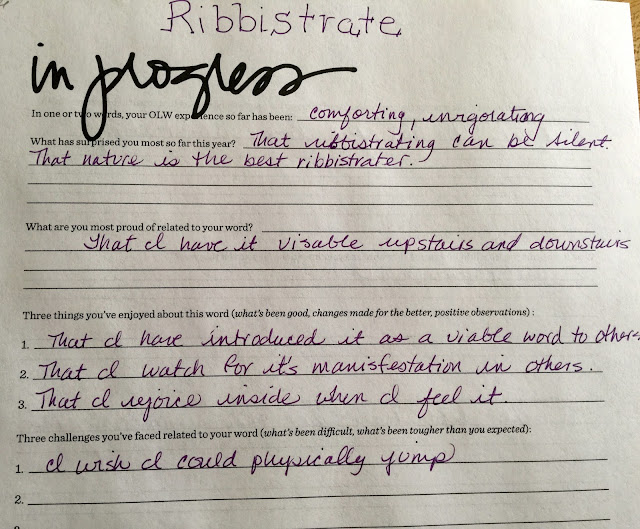 Ribbistrate
in progress
In one or two words, your OLW experience so far has been: comforting, invigorating
What has surprised you most so far this year? That ribbistrating can be silent.
That nature is the best ribbistrater.
What are you most proud of related to your word?
That I have it visable upstairs and downstairs
Three things you've enjoyed about this word (what's been good, changes made for the better, positive observations) :
1. That I have introduced it as a viable word to others.
2. That I watch for it's manisfestation in others.
3. That I rejoice inside when I feel it.
Three challenges you've faced related to your word (what's been difficult, what's been tougher than you expected):
1. I wish I could physically jump
2.